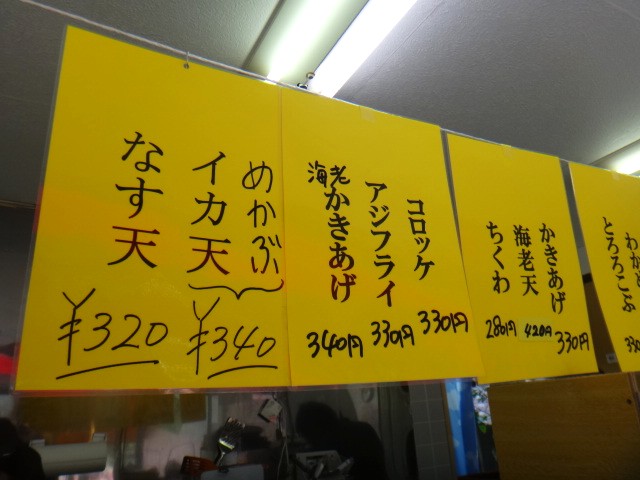 めかぶ
イカ天
¥340
なす天
¥320
コロッケ
330円
アジフライ
330円
海老かきあげ
340円
かきあげ
330円
海老天
420円
ちくわ
280円
とろろこぶ